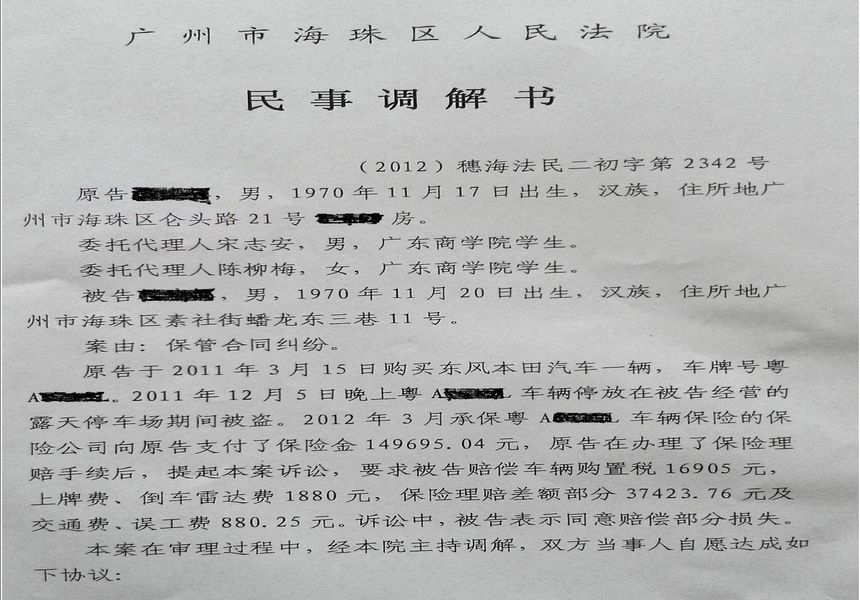 广州市海珠区人民法院
民事调解书
（2012）穗海法民二初字第 2342 号
原告，男，1970 年 11 月 17 日出生，汉族，住所地广
州市海珠区仑头路 21 号 房。
委托代理人宋志安，男，广东商学院学生。
委托代理人陈柳梅，女，广东商学院学生。
被告，男，1970 年 11 月 20 日出生，汉族，住所地广
州市海珠区素社街蟠龙东三巷 11 号。
案由：保管合同纠纷。
原告于 2011 年 3 月 15 日购买东风本田汽车一辆，车牌号粤
A。2011 年 12 月 5 日晚上粤 AL 车辆停放在被告经营的
露天停车场期间被盗。2012 年 3 月承保粤 AL 车辆保险的保
险公司向原告支付了保险金 149695.04 元，原告在办理了保险理
赔手续后，提起本案诉讼，要求被告赔偿车辆购置税 16905 元，
上牌费、倒车雷达费 1880 元，保险理赔差额部分 37423.76 元及
交通费、误工费 880.25 元。诉讼中，被告表示同意赔偿部分损失。
本案在审理过程中，经本院主持调解，双方当事人自愿达成如
下协议：